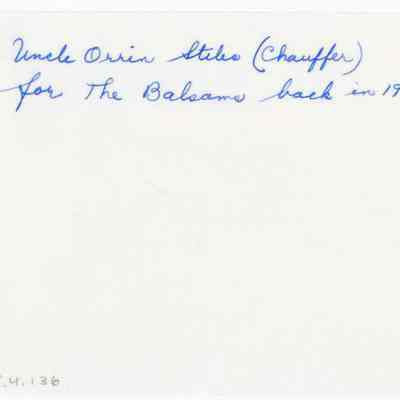 Uncle Orrin Stiles (Chauffer)
for The Balsams back in 19
.4.136